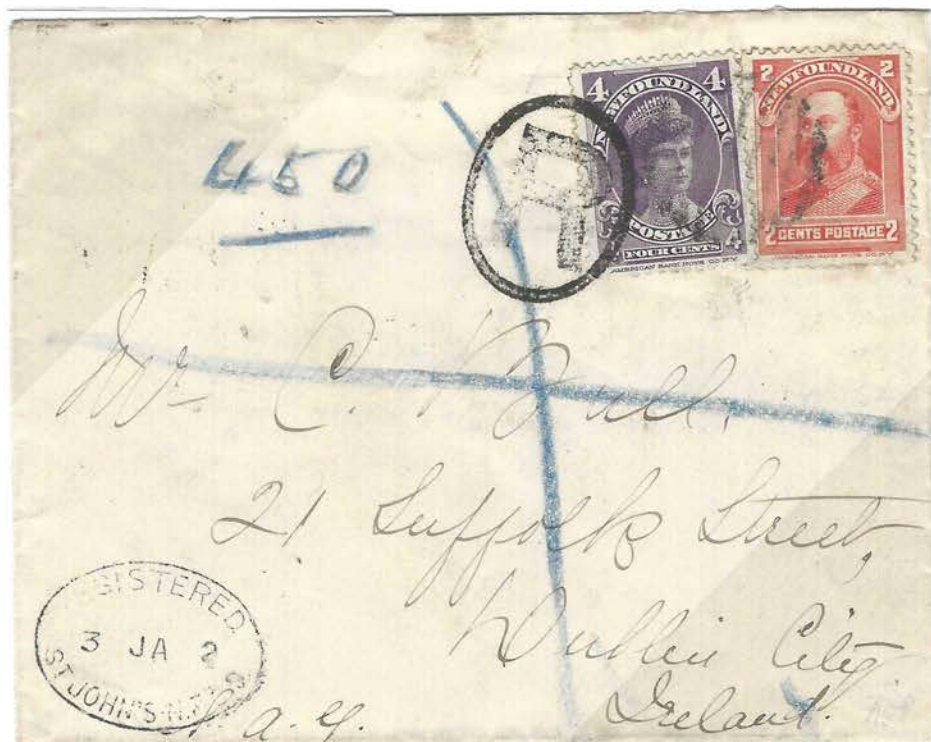 4 4
NEWFOUNDLAND
POSTAGE
FOUR CENTS 4
AMERICAN BANK NOTE CO. N.Y.
2 2
NEWFOUNDLAND
2 CENTS POSTAGE 2
R
450
Mr C.
21 Suffolk Street,
Dublin City
Ireland.
REGISTERED
3 JA 2
ST JOHN'S N.F'L'D